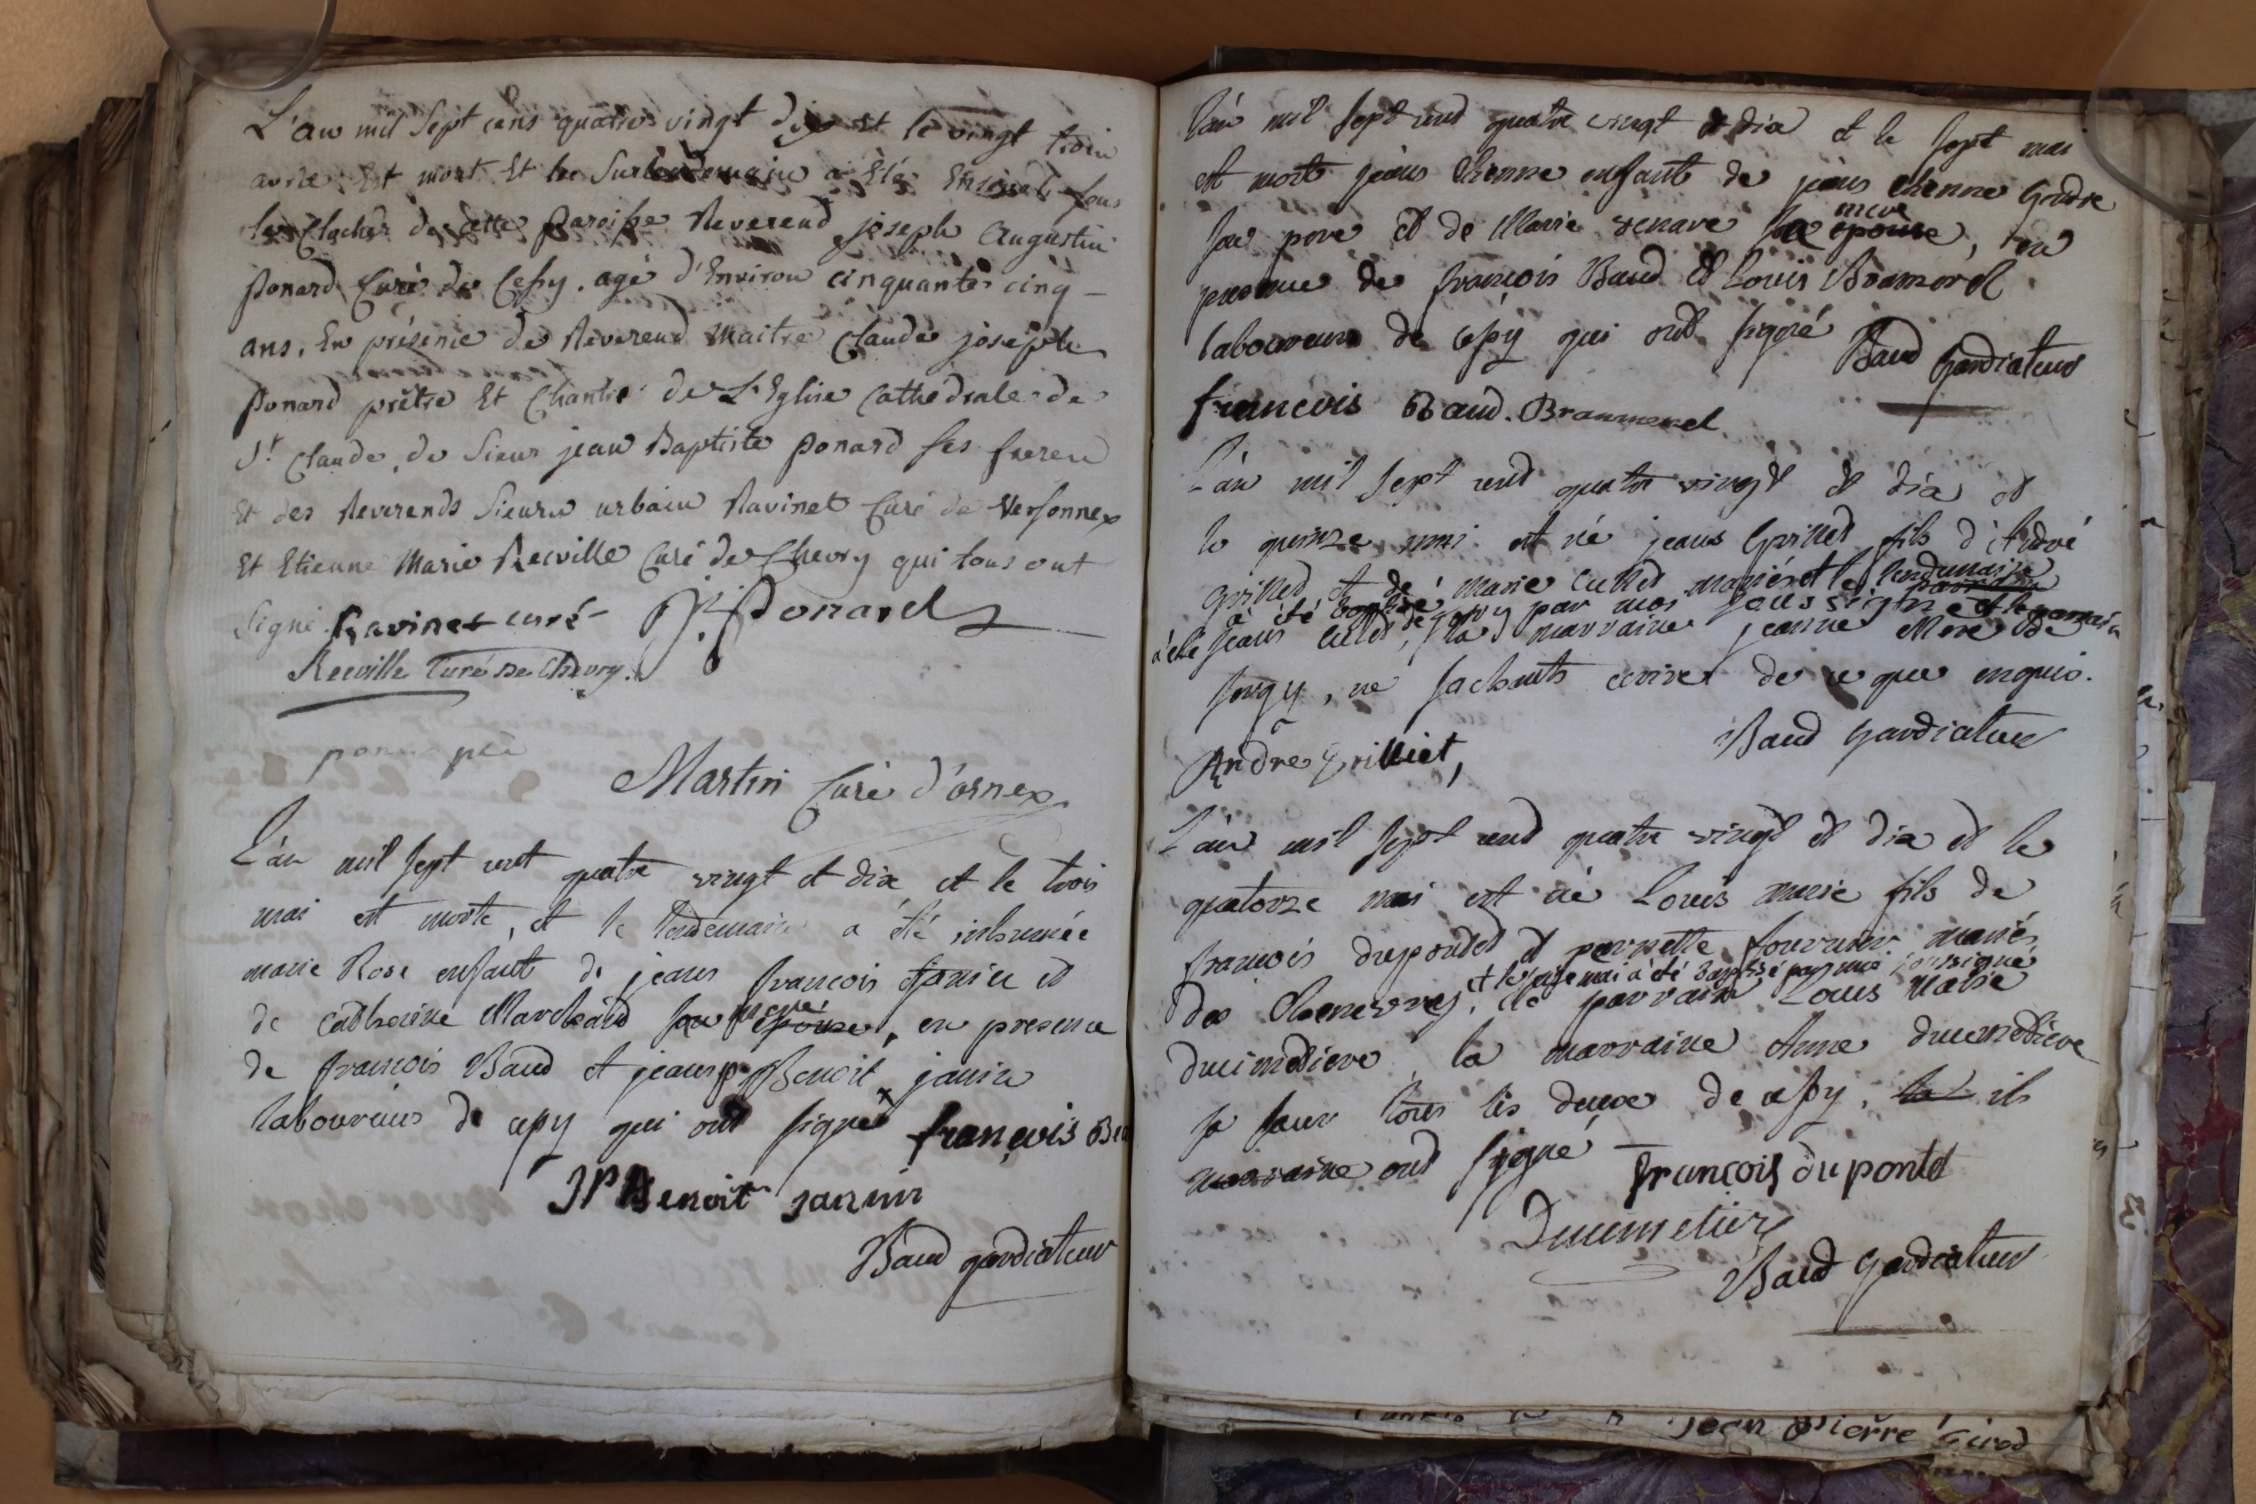 L'an mil Sept cens quatre vingt dix et le vingt trois
avril Est mort Et le Surlendemain a Eté Enterré sous
le Clocher de cette paroisse Reverend joseph Augustin
ponard Curé de Cessy. agé d'Environ cinquante cinq -
ans, En présence de Reverend Maitre Claude joseph
ponard prêtre Et Chantre de L'Eglise Cathedrale de
St Claude, de Sieur jean Baptiste ponard ses freres
Et des Reverends Sieurs urbain Ravinet Curé de Versonnex
Et Etienne Marie Recville Curé de Chevry qui tous ont
Signé Ravinet curé J: Ponard
Recville Curé de Chevry.
Martin Curé d'ornex
L'an mil sept cent quatre vingt et dix et le trois
mai est morte, et le lendemain a été inhumée
marie Rose enfant de jean françois janin et
de catherine Marchand sa mere epouse, en presence
de françois Baud et jean p. Benoit janin
laboureurs de cessy qui ont signé françois
JP Benoit janin
Baud gardiateur
l'an mil sept cent quatre vingt et dix et le sept mai
est mort jean Etienne enfant de jean Etienne
son pere et de Marie renave sa mere epouse, en
presence de françois Baud et Louis Bramerel
laboureurs de cessy qui ont signé Baud gardiateur
françois Baud. Brammerel
L'an mil sept cent quatre vingt et dix et
le quinze mai est né jean Grillet fils d'André
Grillet et de marie Cullet mariés et le lendemain
a été baptisé par moi soussigné et le parrain
a été jean Cullet, la marraine jeanne Mere de
sergy, ne sachants ecrire de ce que enquis.
André Grilliet, Baud gardiateur
L'an mil sept cent quatre vingt et dix et le
quatorze mai est né Louis marie fils de
françois dupontet et pernette fournier mariés
et le seize mai a été baptisé par moi soussigné
des Chenevrey, le parrain Louis Marie
ducimetiere, la marraine Anne ducimetiere
sa soeur tous les deux de cessy, la ils
marraine ont signé françois du pontet
Ducimetiere
Baud gardiateur
jean Pierre Girod